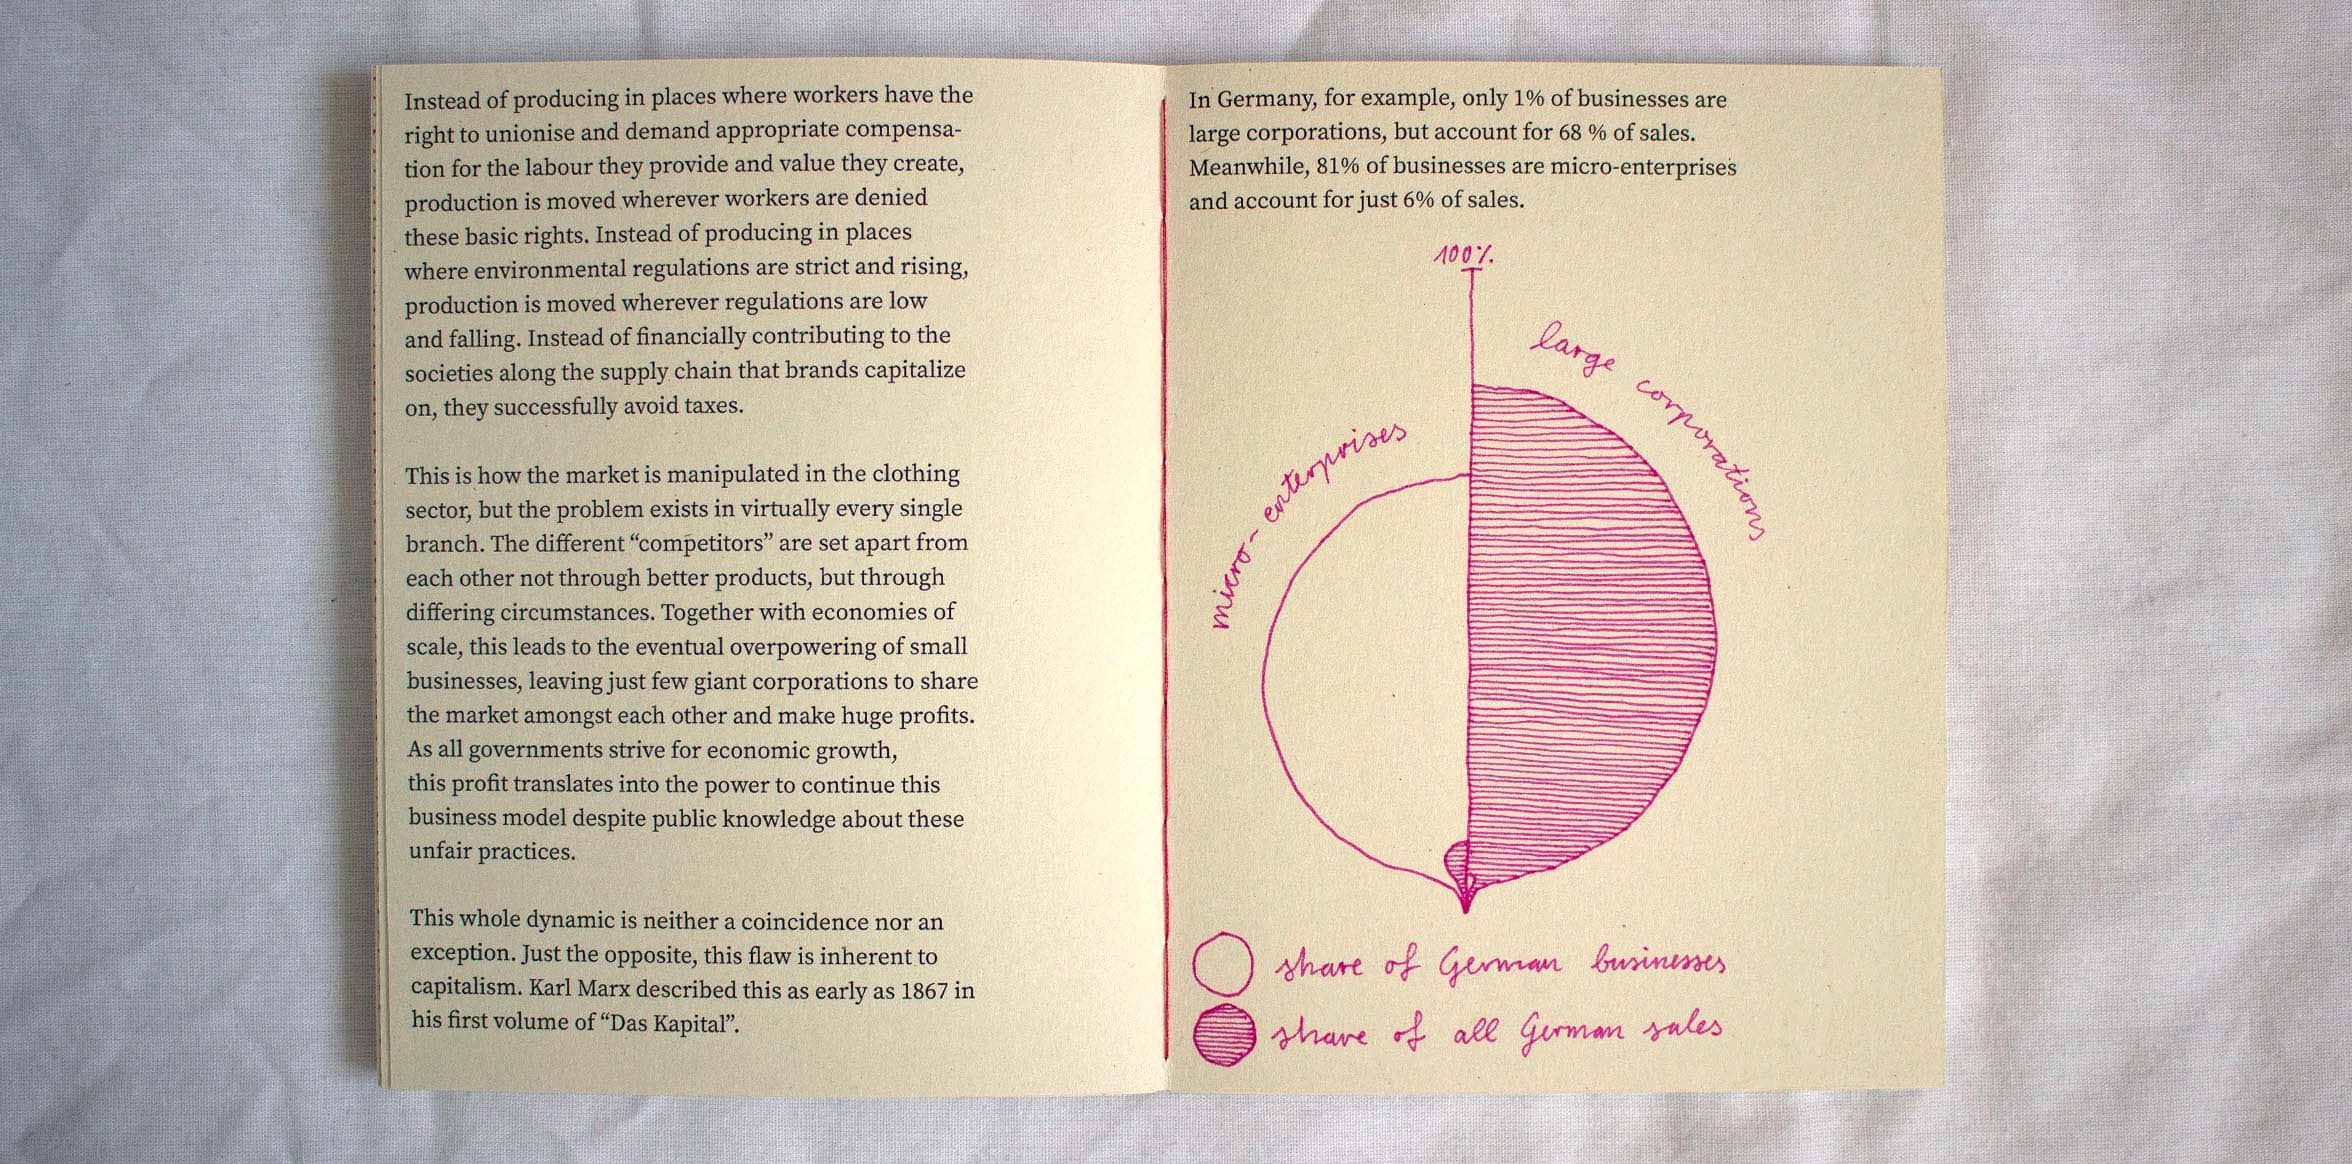 Instead of producing in places where workers have the
right to unionise and demand appropriate compensa-
tion for the labour they provide and value they create,
production is moved wherever workers are denied
these basic rights. Instead of producing in places
where environmental regulations are strict and rising,
production is moved wherever regulations are low
and falling. Instead of financially contributing to the
societies along the supply chain that brands capitalize
on, they successfully avoid taxes.
This is how the market is manipulated in the clothing
sector, but the problem exists in virtually every single
branch. The different “competitors” are set apart from
each other not through better products, but through
differing circumstances. Together with economies of
scale, this leads to the eventual overpowering of small
businesses, leaving just few giant corporations to share
the market amongst each other and make huge profits.
As all governments strive for economic growth,
this profit translates into the power to continue this
business model despite public knowledge about these
unfair practices.
This whole dynamic is neither a coincidence nor an
exception. Just the opposite, this flaw is inherent to
capitalism. Karl Marx described this as early as 1867 in
his first volume of “Das Kapital”.
In Germany, for example, only 1% of businesses are
large corporations, but account for 68 % of sales.
Meanwhile, 81% of businesses are micro-enterprises
and account for just 6% of sales.
100%
large corporations
micro-enterprises
share of German businesses
share of all German sales